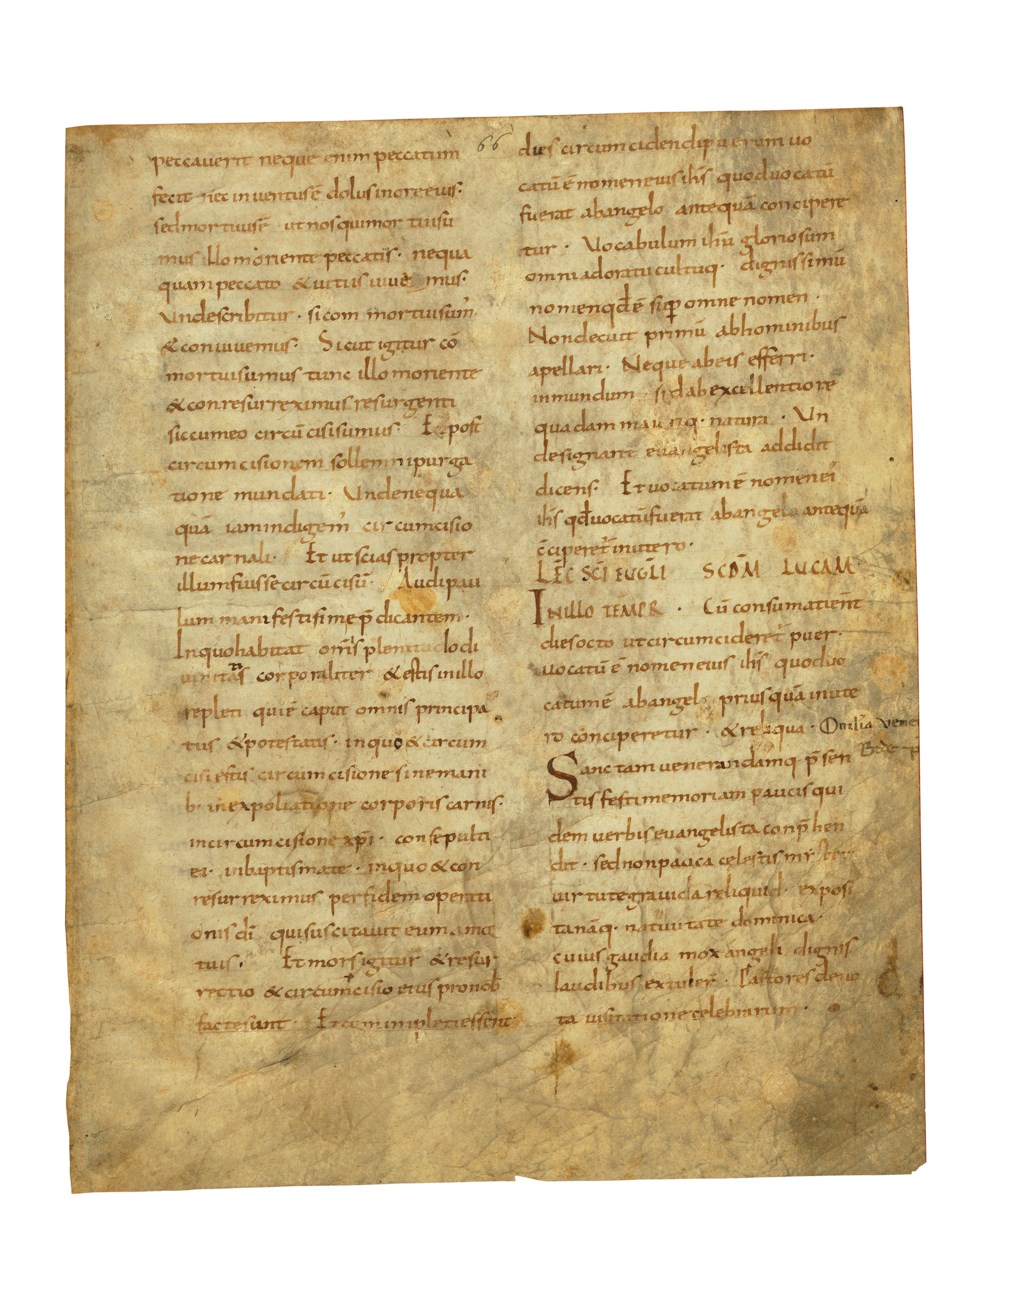 66
peccaverit neque enim peccatum
fecit nec inventus ē dolus in ore eius·
sed mortuus ē ut nos qui mortui su
mus illo moriente peccatis· nequa
quam peccato & vitiis vivemus·
Unde scribitur· si commortui sum'
& convivemus· Sicut igitur cō
mortui sumus tunc illo moriente
& conresurreximus resurgenti
sic cum eo circūcisi sumus· Et post
circumcisionem sollemni purga
tione mundati· Unde nequa
quā iam indigem' circumcisio
ne carnali· Et ut scias propter
illum fuisse circūcisū· Audi pau
lum manifestissime p̄dicantem·
In quo habitat om̄is plenitudo di
vinitatis corporaliter & estis in illo
repleti qui ē caput omnis principa
tus & potestatis· in quo & circum
cisi estis circumcisione sine mani
b· in expoliatione corporis carnis·
in circumcisione xp̄i· consepulti
ei· in baptismate· in quo & con
resurreximus per fidem operati
onis dī qui suscitavit eum a mor
tuis· Et mors igitur & resur
rectio & circumcisio eius pro nob̄
facte sunt· Et cum impleti essent
dies circumcidendi puerum vo
catū ē nomen eius ih̄s quod vocatū
fuerat ab angelo antequā concipere
tur· Vocabulum ih̄u gloriosum
omni adoratu cultuq· dignissimū
nomen qd̄ ē sup omne nomen·
Non decuit primū ab hominibus
apellari· Neque ab eis efferri·
in mundum sed ab excellentiore
quadam maioriq· natura· Un
designant evangelista addidit
dicens· Et vocatum ē nomen ei'
ih̄s qd̄ vocatū fuerat ab angelo antequā
c̄ciperet' in utero·
LEC̄ SC̄I EUGL̄I SCD̄M LUCAM·
IN ILLO TEMPR· Cū consumati ent̄
dies octo ut circumcideret' puer·
vocatū ē nomen eius ih̄s quod vo
catum ē ab angelo priusquā in ute
ro conciperetur· & reliqua· Omilia vene
Bede p
Sanctam venerandamq· p̄sen
tis festi memoriam paucis qui
dem verbis evangelista conp̄hen
dit· sed non pauca celestis
virtute gravida reliquid· exposi
ta nāq· nativitate dominica·
cuius gaudia mox angeli dignis
laudibus extuler̄· Pastores devo
ta visitatione celebrarunt·